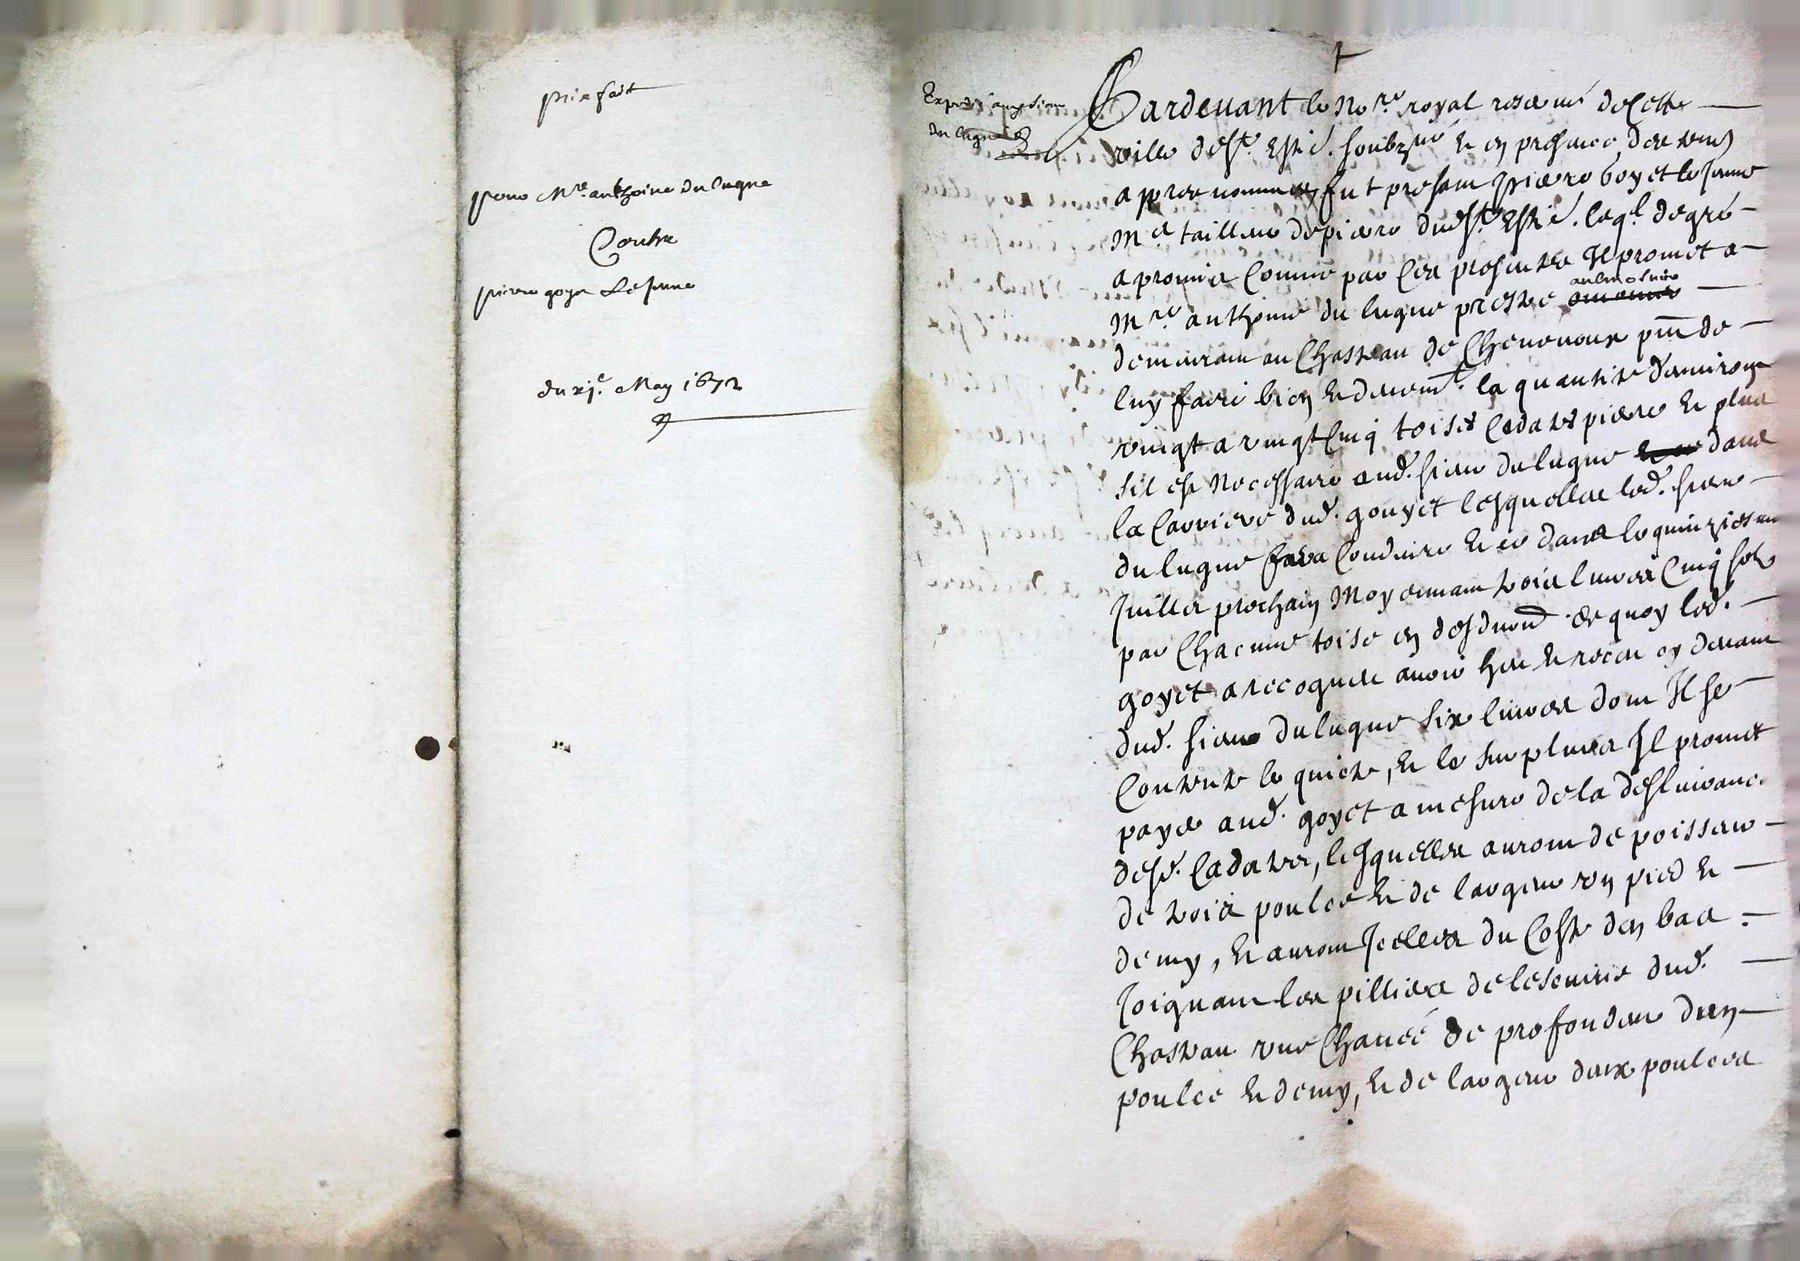 prix fait
pour Mre. anthoine du lugne
Contre
pierre goyet Le Jeune
du xje. May 1672
Expedié aud. sieur
du lugne
Pardevant le Nore. royal reservé de cette
ville de St. Esti�. soubzné et en presance des tesm.
appres nommes fut presant pierre goyet le Jeune
Me. tailleur de piere dud. St. Estié. leql. de gré
a promis Comme par Ces presentes Il promet a
aulmosnier
Mre. anthoine du lugne prestre
demeurant au Chasteau de Chenevoux pnt. de
luy faire bien et deuemt. la quantité d'environ
vingt a vingt Cinq toises Cadates piere et plus
sil est Necessaire aud. sieur du lugne dans
la Carriere dud. gouyet lesquelles led. sieur
du lugne fera Conduire et ce dans le quinziesme
Juillet prochain Moyennant trois livres Cinq solz
par Chacune toise en desduon. de quoy led.
goyet a recogneu avoir heu et receu cy devant
dud. sieur du lugne six livres dont Il se
Contente le quicte, et le surplus Il promet
payer aud. goyet a mesure de la deslivrance
desd. Cadates, lesquelles auront de poisseur
de trois poulces et de largeur un pied et
demy, et auront Icelles du Costé den bas
Joignant les pilliers de lescuirie dud.
Chasteau une Chanée de profondeur dun
poulce et demy, et de largeur deux poulces